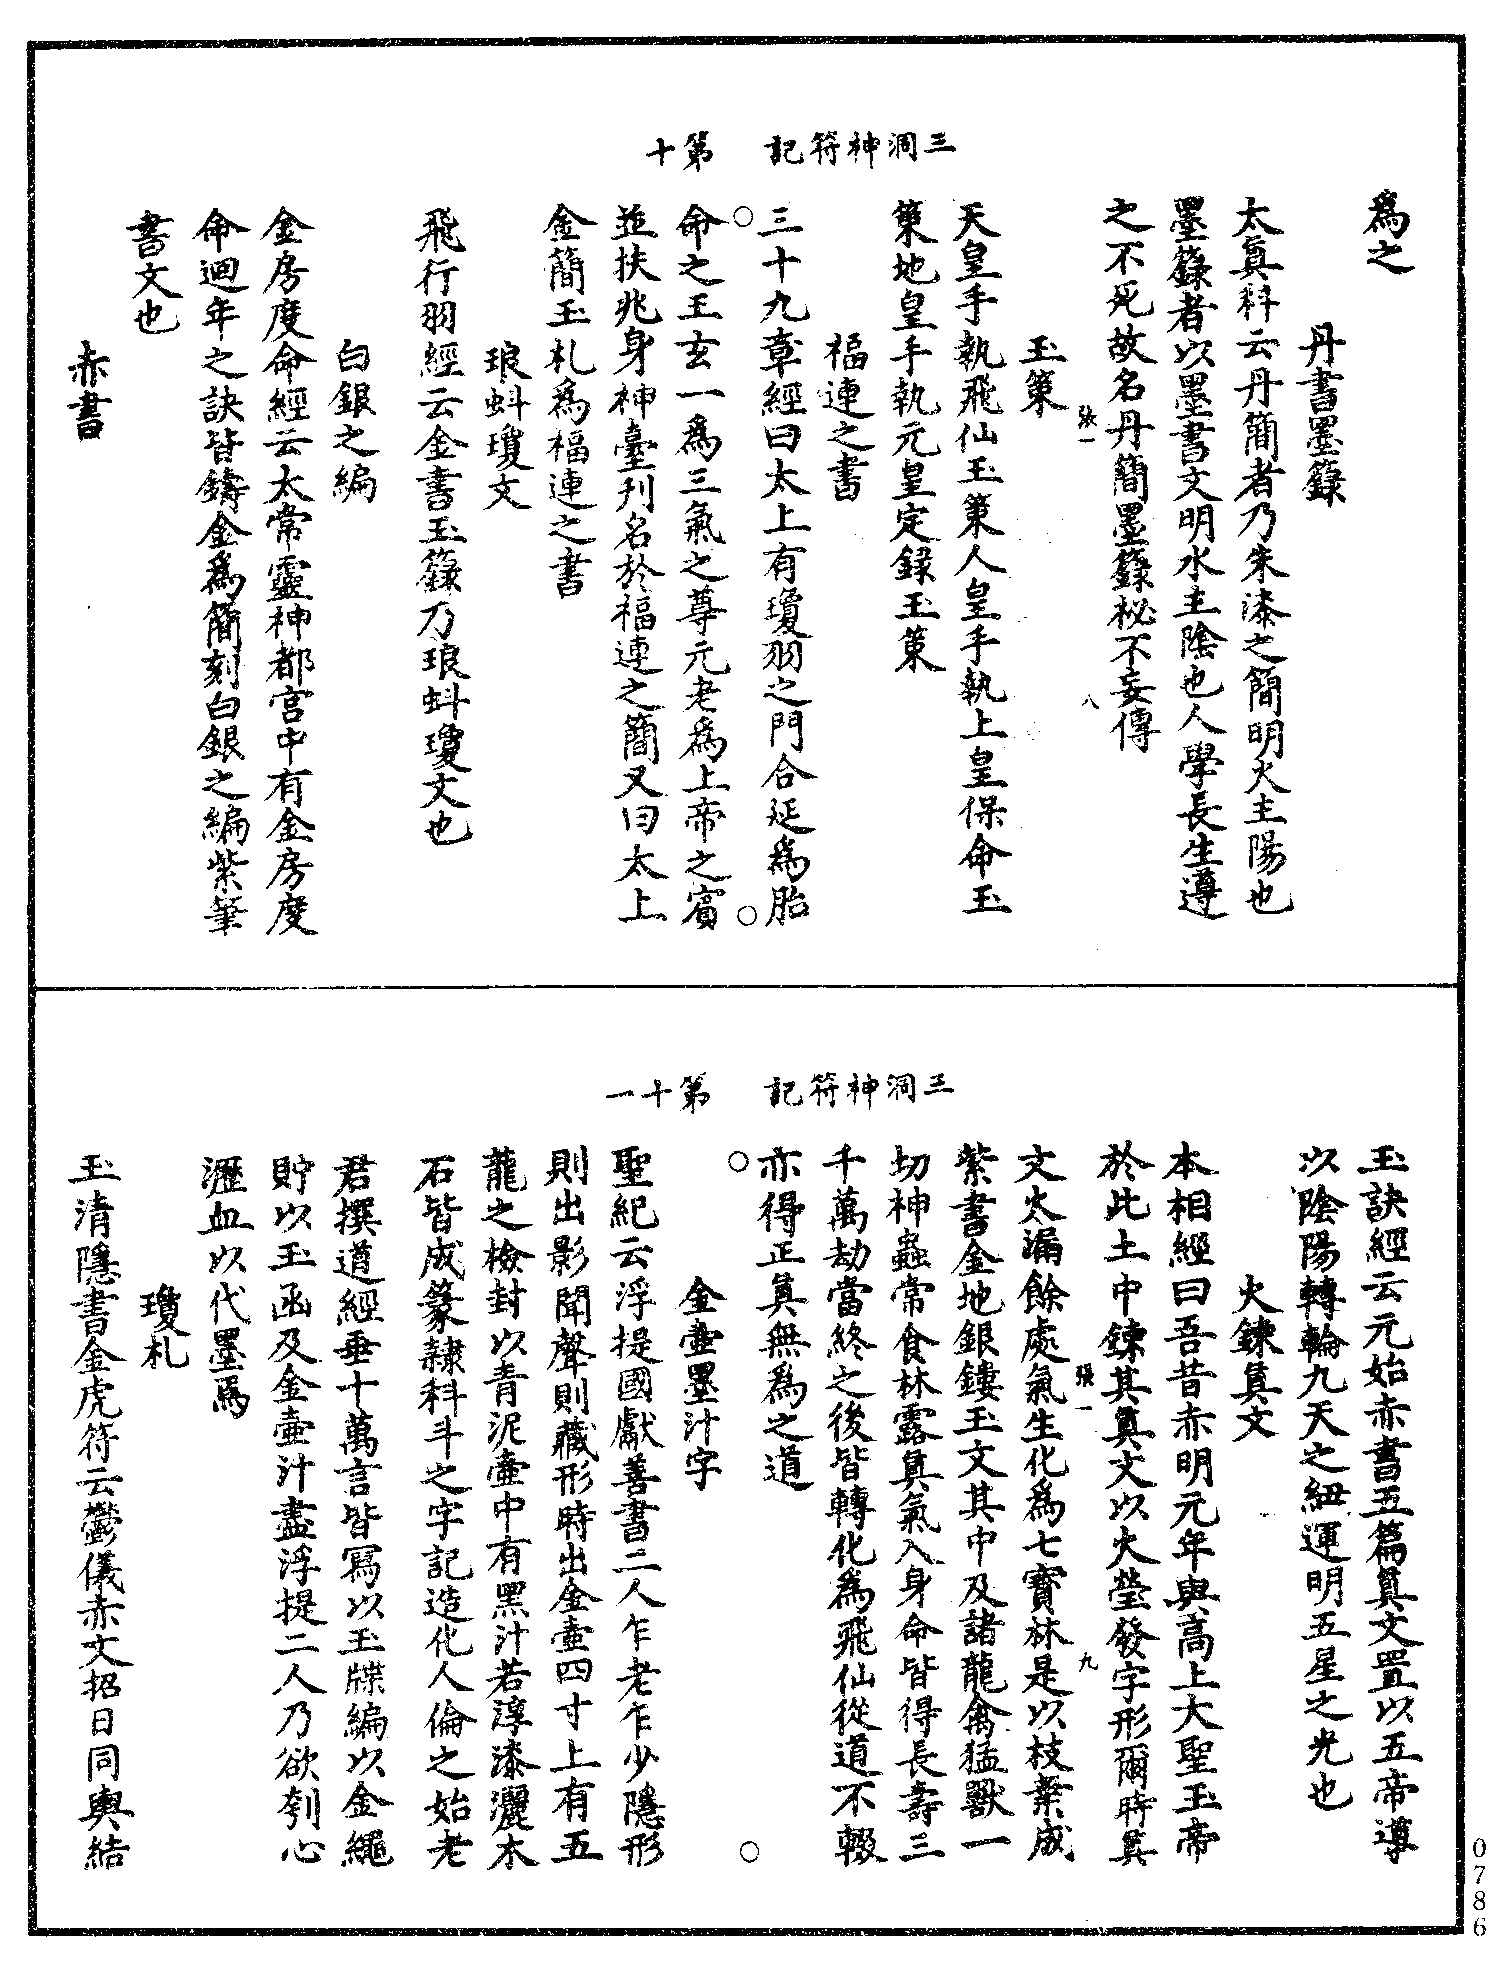 三洞神符記　第十
為之
丹書墨籙
太真科云丹簡者乃朱漆之簡明火主陽也
墨籙者以墨書文明水主陰也人學長生遵
之不死故名丹簡墨籙祕不妄傳
張一
八
玉策
天皇手執飛仙玉策人皇手執上皇保命玉
策地皇手執元皇定録玉策
福連之書
三十九章經曰太上有瓊羽之門合延為胎
命之王玄一為三氣之尊元老為上帝之賓
並扶兆身神臺刋名於福連之簡又曰太上
金簡玉札為福連之書
琅蚪瓊文
飛行羽經云金書玉籙乃琅蚪瓊文也
白銀之編
金房度命經云太常靈神都宮中有金房度
命迴年之訣皆鑄金為簡刻白銀之編紫筆
書文也
赤書
三洞神符記　第十一
玉訣經云元始赤書五篇真文置以五帝導
以陰陽轉輪九天之紐運明五星之光也
火鍊真文
本相經曰吾昔赤明元年與高上大聖玉帝
於此土中鍊其真文以火瑩發字形爾時真
文火漏餘處氣生化為七寶林是以枝葉成
張一
九
紫書金地銀鏤玉文其中及諸龍禽猛獸一
切神蟲常食林露真氣入身命皆得長壽三
千萬劫當終之後皆轉化為飛仙從道不輟
亦得正真無為之道
金壷墨汁字
聖紀云浮提國獻善書二人乍老乍少隱形
則出影聞聲則藏形時出金壷四寸上有五
龍之檢封以青泥壷中有黑汁若淳漆灑木
石皆成篆隷科斗之字記造化人倫之始老
君撰道經垂十萬言皆寫以玉牒編以金繩
貯以玉函及金壷汁盡浮提二人乃欲刳心
瀝血以代墨焉
瓊札
玉清隱書金虎符云鬱儀赤文招日同輿結
0786